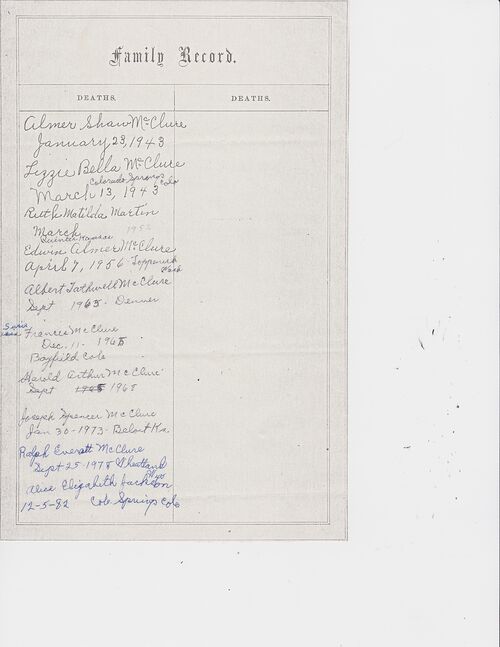 Family Record.
DEATHS. DEATHS.
Almer Shaw McClure
January 23, 1943
Lizzie Bella McClure
Colorado Springs Colo
March 13, 1943
Ruth Matilda Martin
March 1952
Quinter Kansas
Edwin Almer McClure
April 7, 1956 Toppenish Wash
Albert Tathwell McClure
Sept 1965 Denver
Frances McClure
Dec. 11 - 1965
Bayfield Colo
Harold Arthur McClure
Sept 1965 1968
Joseph Spencer McClure
Jan 30-1973- Beloit Ks.
Ralph Everatt McClure
Sept 25-1978 Wheatland Wyo
Alice Elizabeth Jackson
12-5-82 Colo Springs Colo